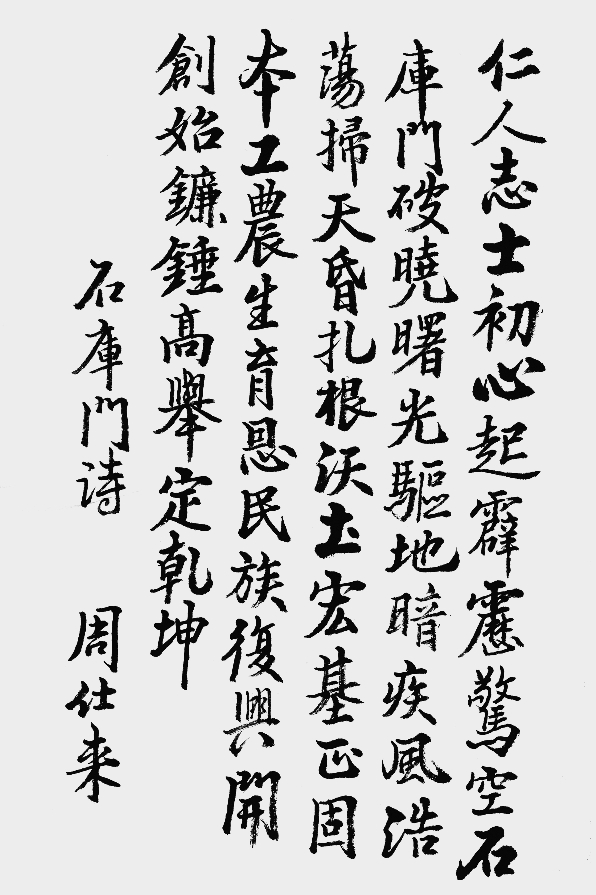 仁人志士初心起霹靂驚空石
庫門破曉曙光驅地暗疾風浩
蕩掃天昏扎根沃土宏基正固
本工農生育恩民族復興開
創始鐮錘高舉定乾坤
石庫門诗 周仕来